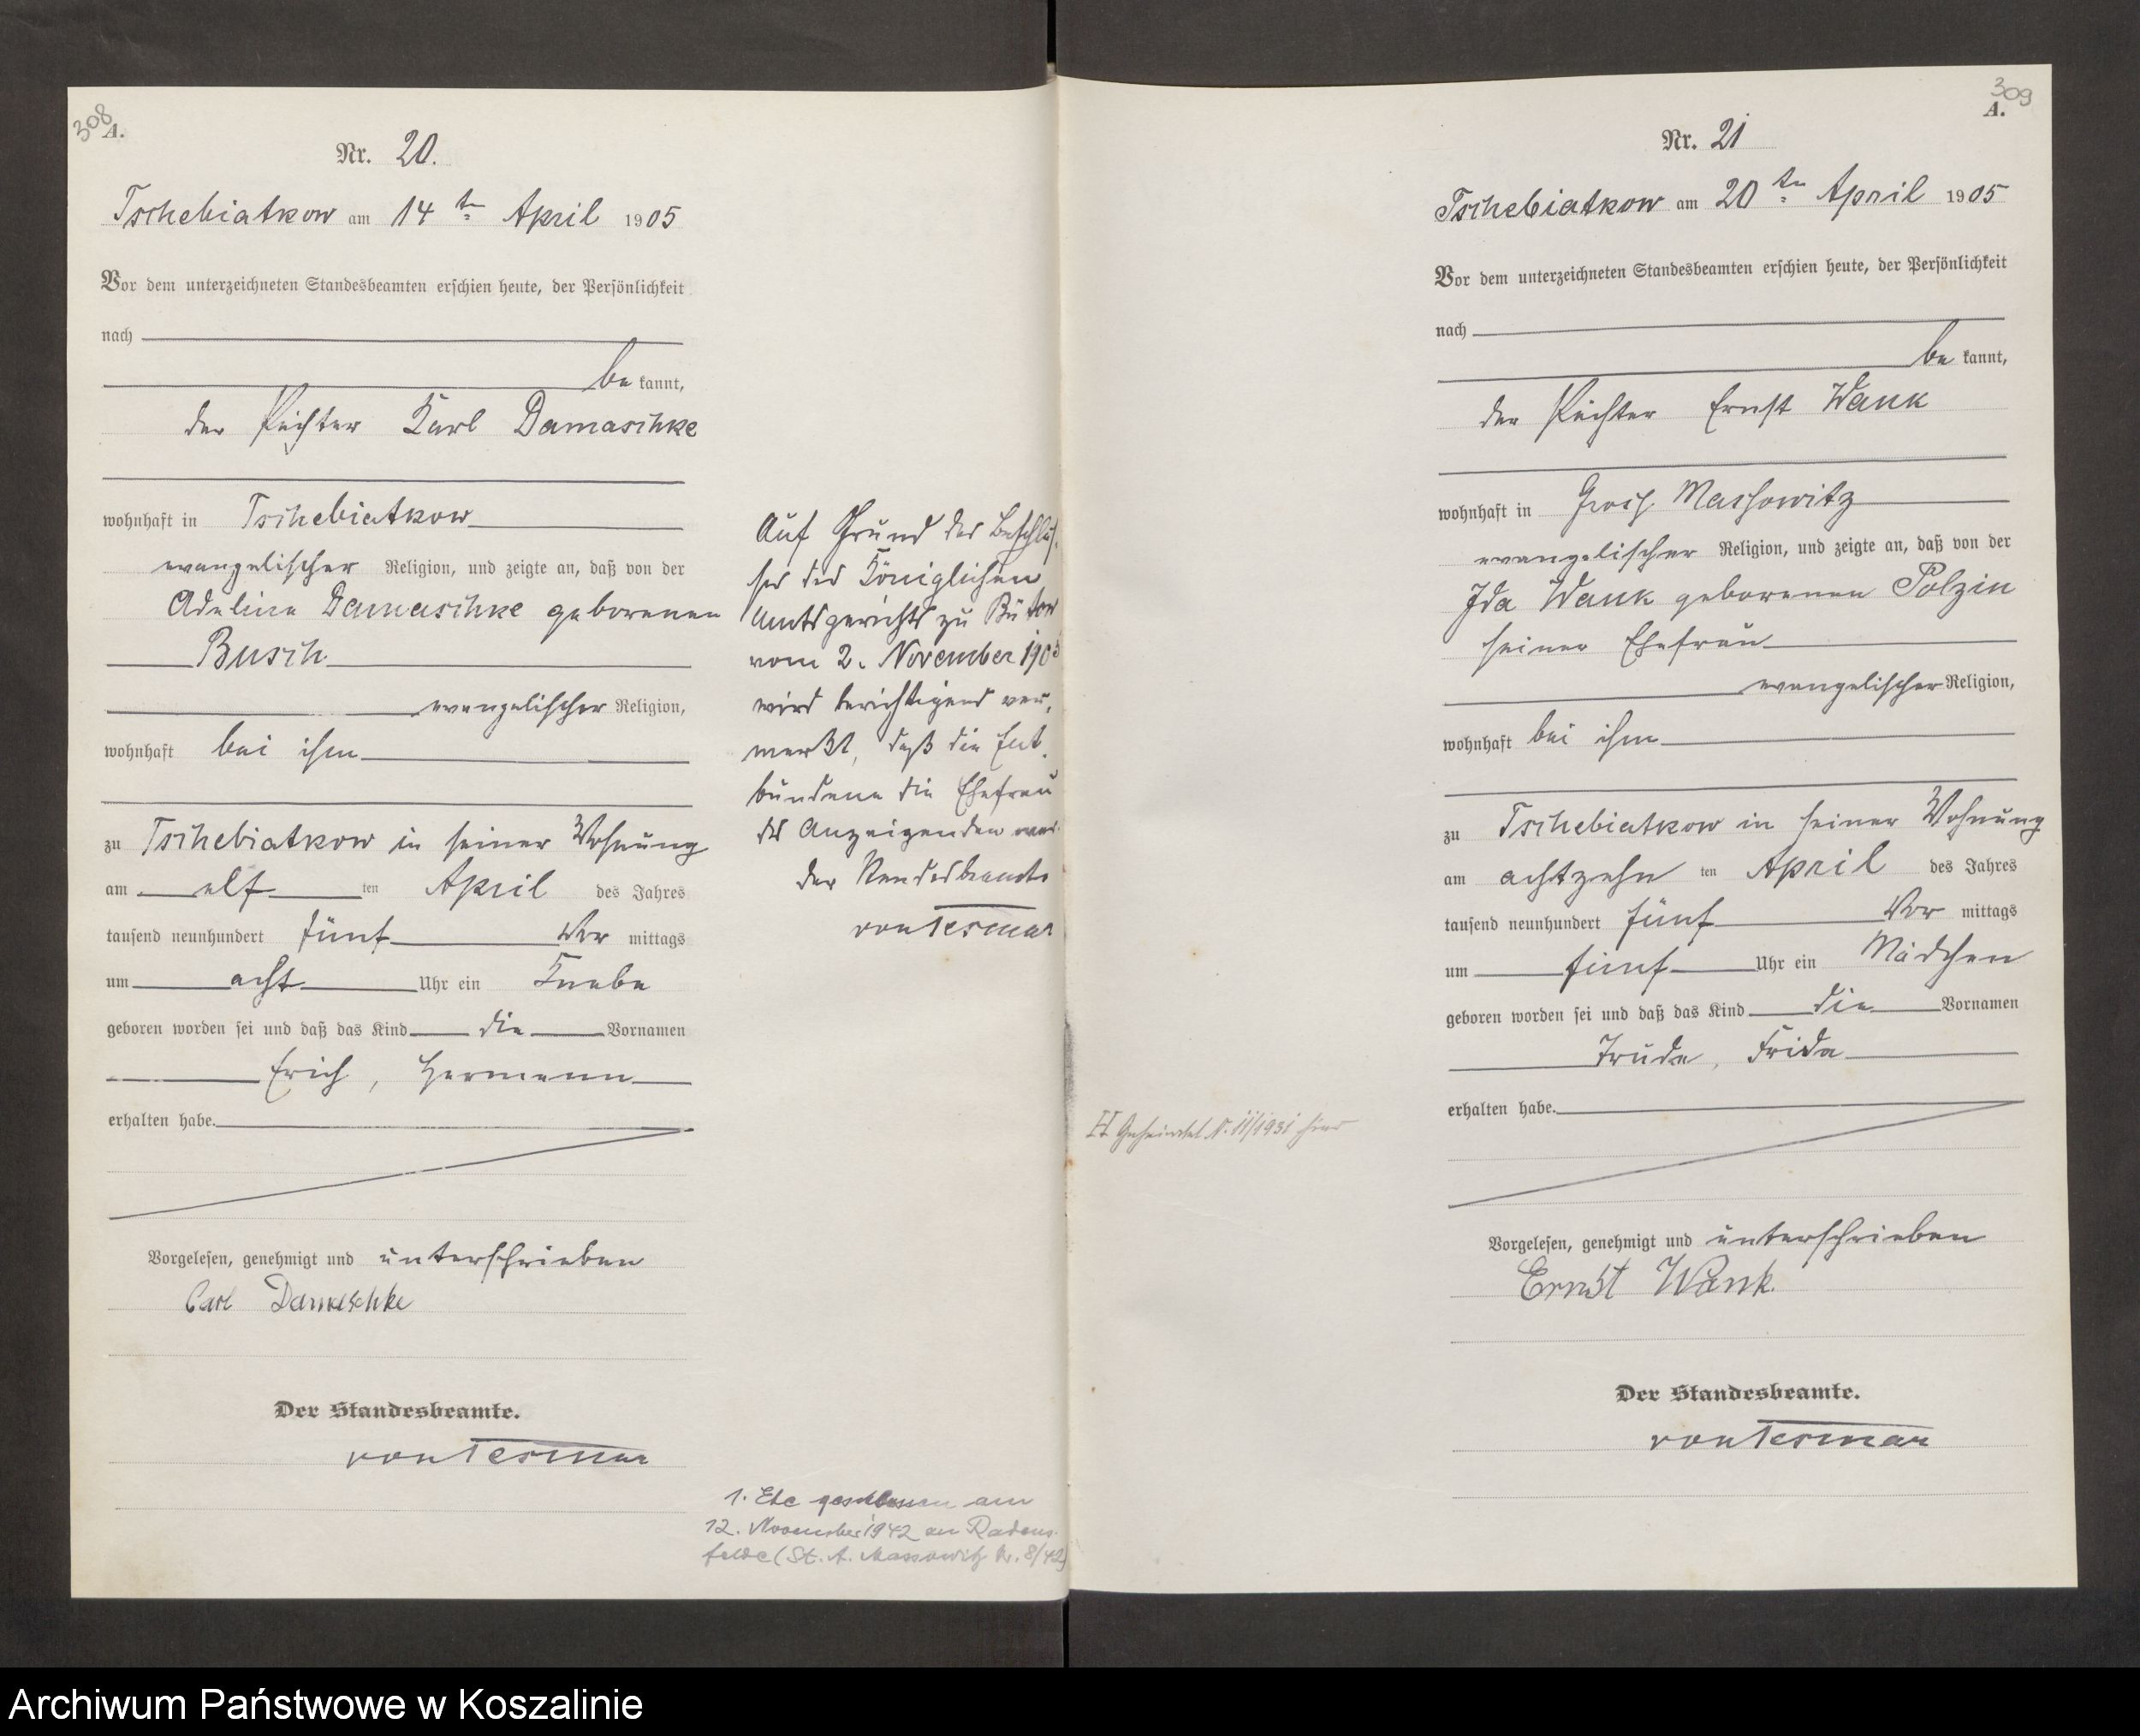 308
A.
Nr. 20.
Tschebiatkow am 14ten April 1905
Vor dem unterzeichneten Standesbeamten erschien heute, der Persönlichkeit
nach
be kannt,
der Pächter Karl Damaschke
wohnhaft in Tschebiatkow
evangelischer Religion, und zeigte an, daß von der
Adeline Damaschke geborenen
Busch
evangelischer Religion,
wohnhaft bei ihm
zu Tschebiatkow in seiner Wohnung
am elf ten April des Jahres
tausend neunhundert fünf Vor mittags
um acht Uhr ein Knabe
geboren worden sei und daß das Kind die Vornamen
Erich, Hermann
erhalten habe.
Vorgelesen, genehmigt und unterschrieben
Carl Damaschke
Der Standesbeamte.
von Tesmar
Auf Grund des Beschlus-
ses des Königlichen
Amtsgerichts zu Bütow
vom 2. November 1905
wird berichtigend ver-
merkt, daß die Ent-
bundene die Ehefrau
des Anzeigenden
der Standesbeamte
von Tesmar
1. Ehe geschlossen am
12. November 1942 in Radens-
felde (St. A. Massowitz Nr. 8/42)
309
A.
Nr. 21
Tschebiatkow am 20ten April 1905
Vor dem unterzeichneten Standesbeamten erschien heute, der Persönlichkeit
nach
be kannt,
der Pächter Ernst Wank
wohnhaft in Gross Massowitz
evangelischer Religion, und zeigte an, daß von der
Ida Wank geborenen Polzin
seiner Ehefrau
evangelischer Religion,
wohnhaft bei ihm
zu Tschebiatkow in seiner Wohnung
am achtzehn ten April des Jahres
tausend neunhundert fünf Vor mittags
um fünf Uhr ein Mädchen
geboren worden sei und daß das Kind die Vornamen
Trude, Frida
erhalten habe.
Vorgelesen, genehmigt und unterschrieben
Ernst Wank.
Der Standesbeamte.
von Tesmar
Geheiratet N. 11/1931 hier
Archiwum Państwowe w Koszalinie